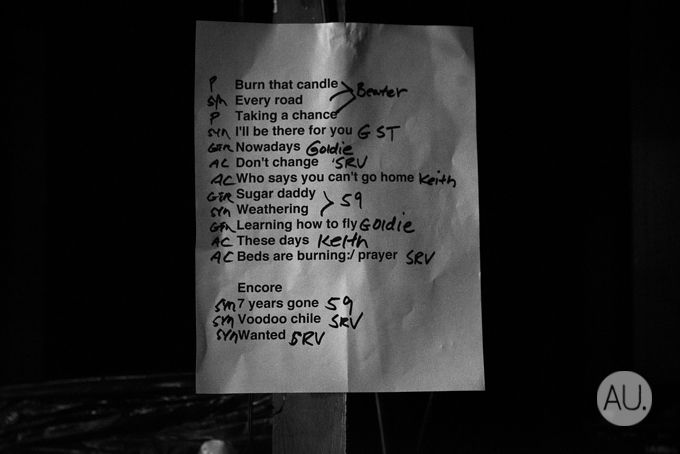 P Burn that candle
SYN Every road Beater
P Taking a chance
SYN I'll be there for you GST
GTR Nowadays Goldie
AC Don't change SRV
AC Who says you can't go home Keith
GTR Sugar daddy
SYN Weathering 59
GTR Learning how to fly Goldie
AC These days Keith
AC Beds are burning:/ prayer SRV
Encore
SYN 7 years gone 59
SYN Voodoo chile SRV
SYN Wanted SRV
AU.